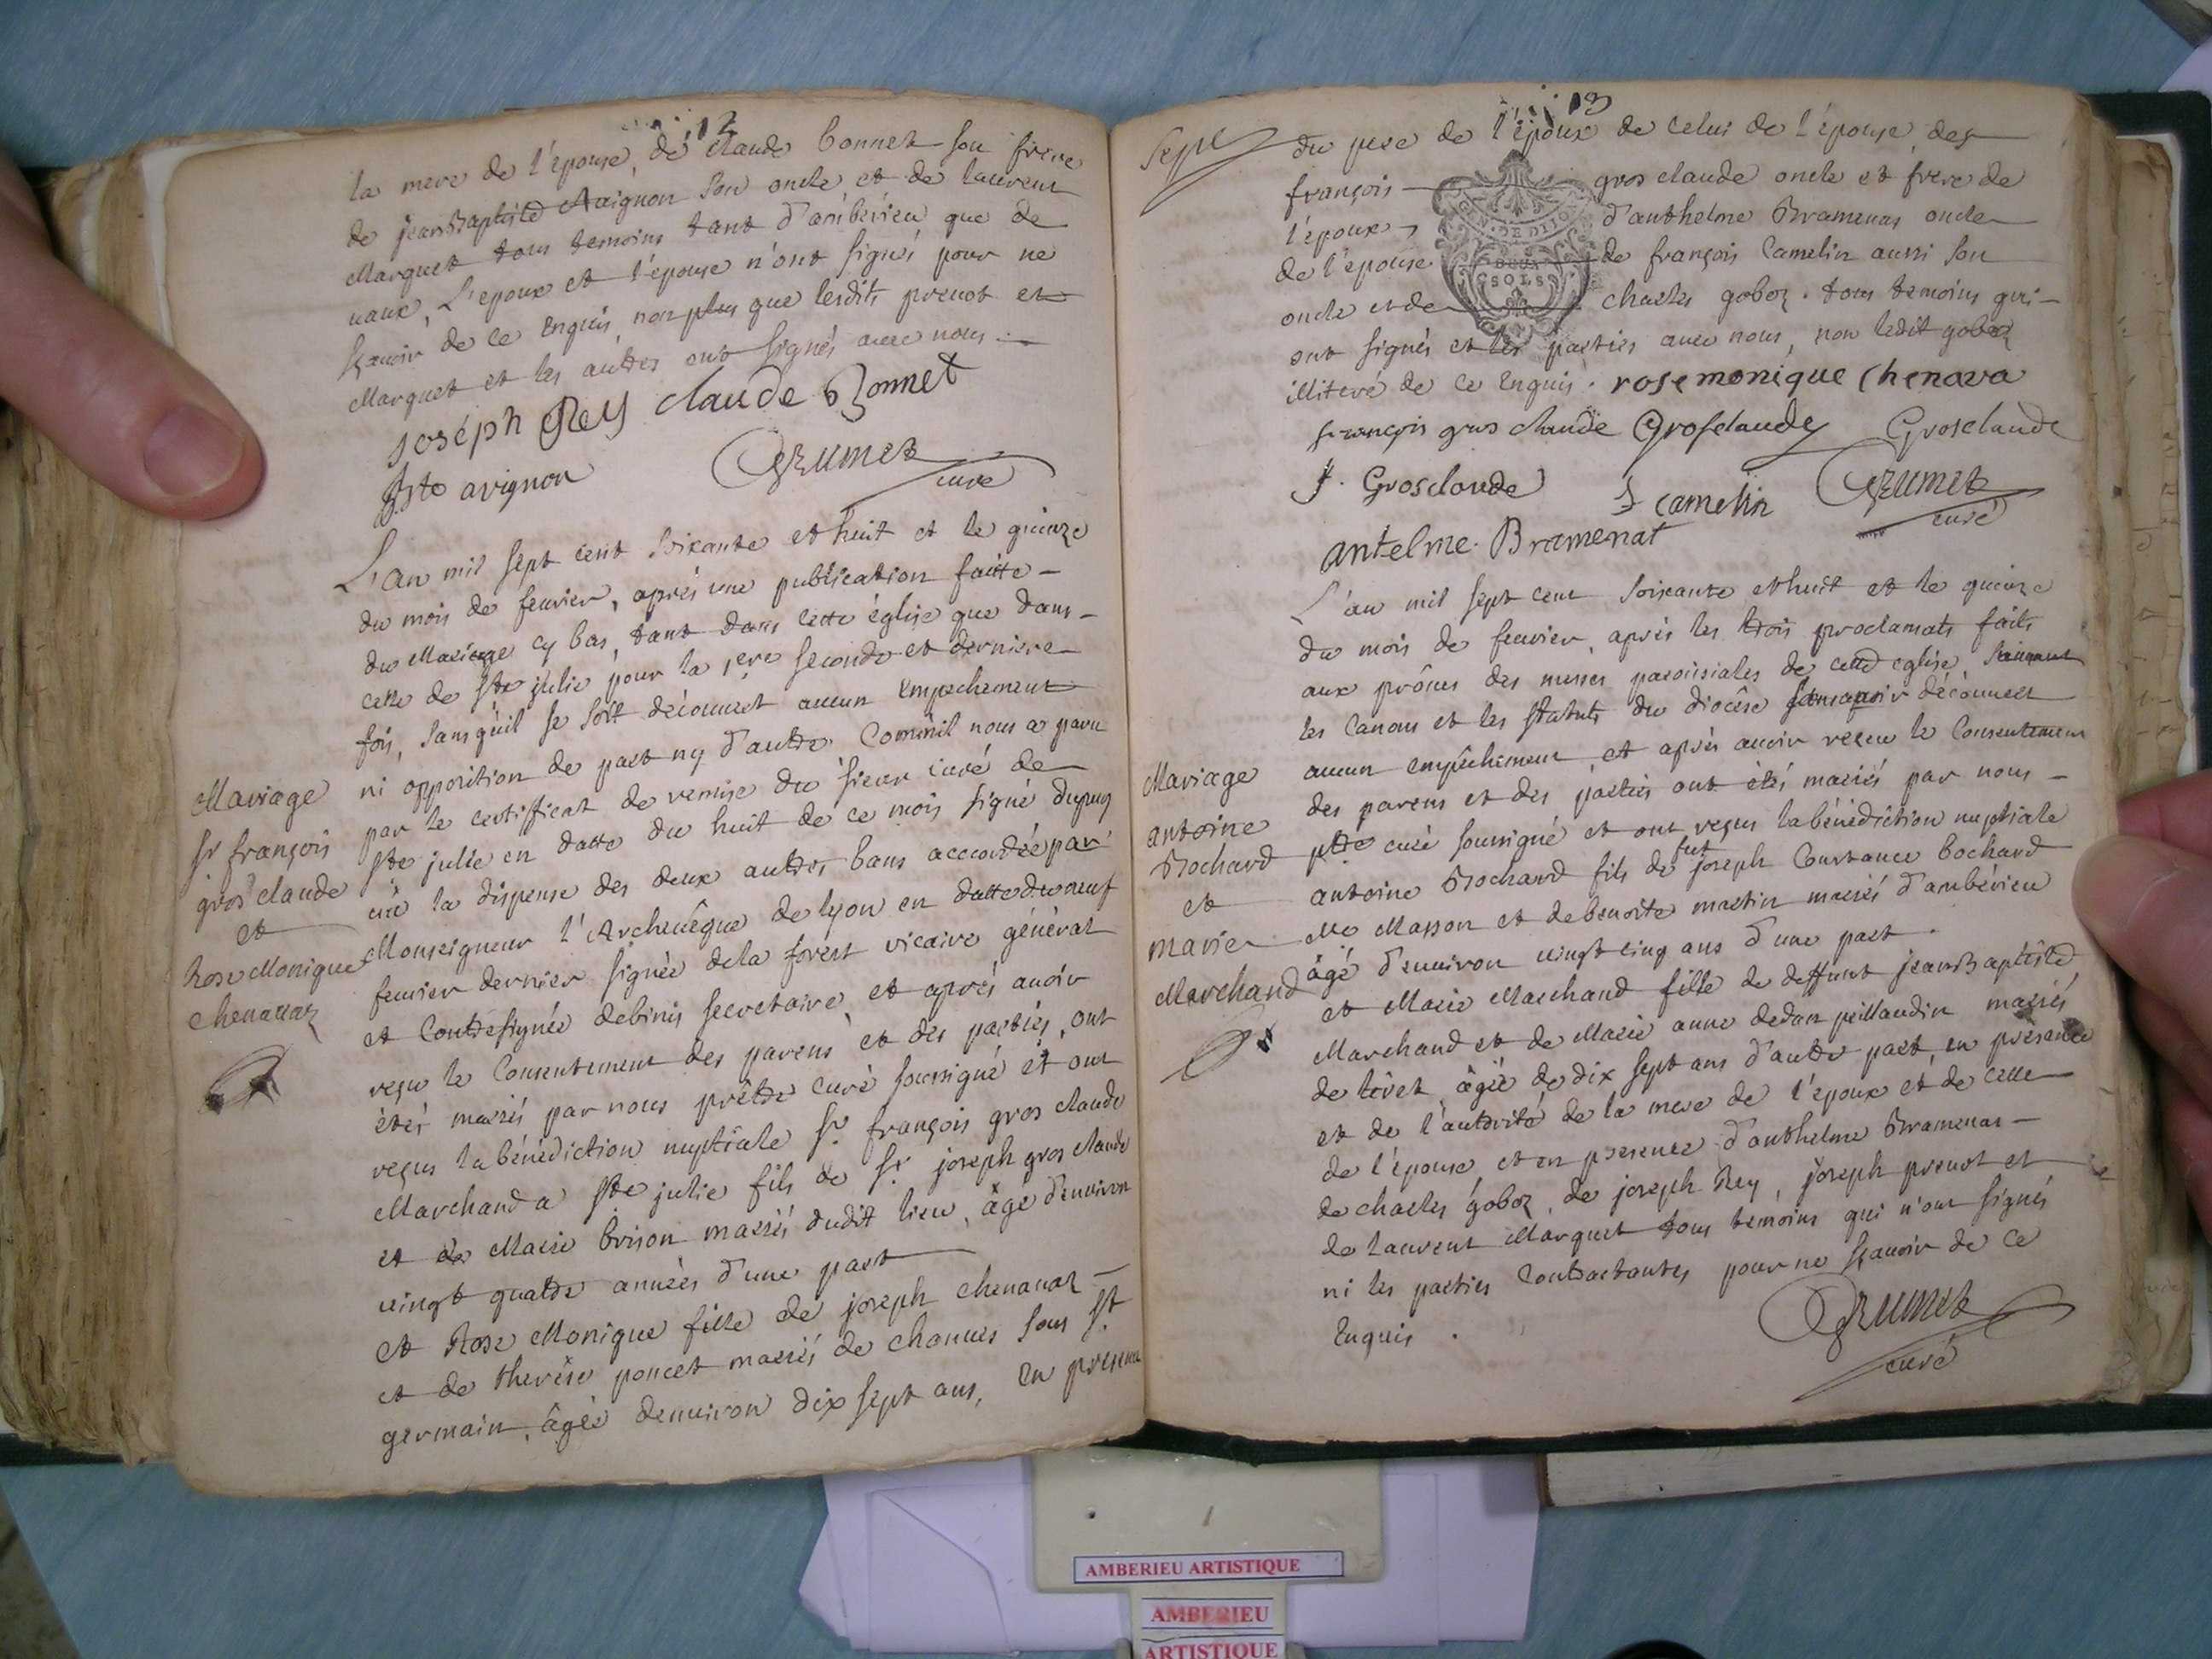 12
la mere de l'épouse, de claude bonnet son frere
de jeanBaptiste Avignon son oncle et de laurent
Marquet tous temoins tant d'ambérieu que de
vaux, L'epoux et l'épouse n'ont signés pour ne
sçavoir de ce Enquis, non plus que lesdits prevot et
Marquet et les autres ont signés avec nous.
joséph Rey claude Bonnet
Bte avignon
GRumet
curé
L'an mil sept cent soixante et huit et le quinze
du mois de fevrier, après une publication faitte
du Mariage cy bas, tant dans cette église que dans
celle de Ste julie pour la 1ere seconde et derniere
fois, sans qu'il se soit découvert aucun Empechement
ni opposition de part ny d'autre Comm'il nous a paru
par le certifficat de remise du sieur curé de
Ste julie en datte du huit de ce mois signé dupuy
vû la dispense des deux autres bans accordée par
Monseigneur l'Archevêque de lyon en datte du neuf
fevrier dernier signée dela forest vicaire général
et Contresignée debinis secretaire, et aprés avoir
reçu le Consentement des parens et des parties, ont
étés mariés par nous prêtre curé soussigné et ont
reçus la bénédiction nuptiale Sr. françois gros claude
Marchand a Ste julie fils de Sr. joseph gros claude
et de Marie brison mariés dudit lieu, âgé d'environ
vingt quatre années d'une part
et Rose Monique fille de joseph chenavaz
et de therése poncet mariés de chanves sous St
germain, âgée denviron dix sept ans, En presence
Mariage
Sr françois
gros claude
et
Rose Monique
chenavaz
13
Sept
du pere de l'époux de celui de l'épouse, des
françois gros claude oncle et frere de
l'époux d'anthelme Bramenas oncle
de l'épouse de françois Camelin aussi son
oncle et de charles goboz. tous temoins qui
ont signés et les parties avec nous, non ledit goboz
illiteré de ce Enquis. rose monique chenava
GEN. DE DIJON
DEUX
SOLS
françois gros claude Grosclaude Grosclaude
f. Grosclaude
f camelin
GRumet
curé
antelme. Bramenat
L'an mil sept cent soixante et huit et le quinze
du mois de fevrier, aprés les trois proclamats faits
aux prônes des messes paroissiales de cette eglise suivant
les Canons et les statuts du diocêse sans avoir découvert
aucun empêchement, et aprés avoir reçeu le Consentement
des parens et des parties ont étés mariés par nous
ptre curé soussigné et ont reçus la bénédiction nuptiale
antoine Bochard fils de fut joseph Constance bochard
Me Masson et de benoite martin mariés d'ambérieu
âgé d'environ vingt cinq ans d'une part.
et Marie Marchand fille de deffunt jeanBaptiste
Marchand et de Marie anne dedan peillaudin mariés
de l'êret, âgée de dix sept ans d'autre part, en présence
et de l'autorité de la mere de l'époux et de celle
de l'épouse, et en presence d'anthelme Bramenas
de charles goboz, de joseph Rey, joseph prevot et
de laurent Marquet tous temoins qui n'ont signés
ni les parties Contractantes pour ne sçavoir de ce
Enquis.
GRumet
curé
Mariage
antoine
Bochard
et
marie
Marchand
AMBERIEU ARTISTIQUE
AMBERIEU
ARTISTIQUE